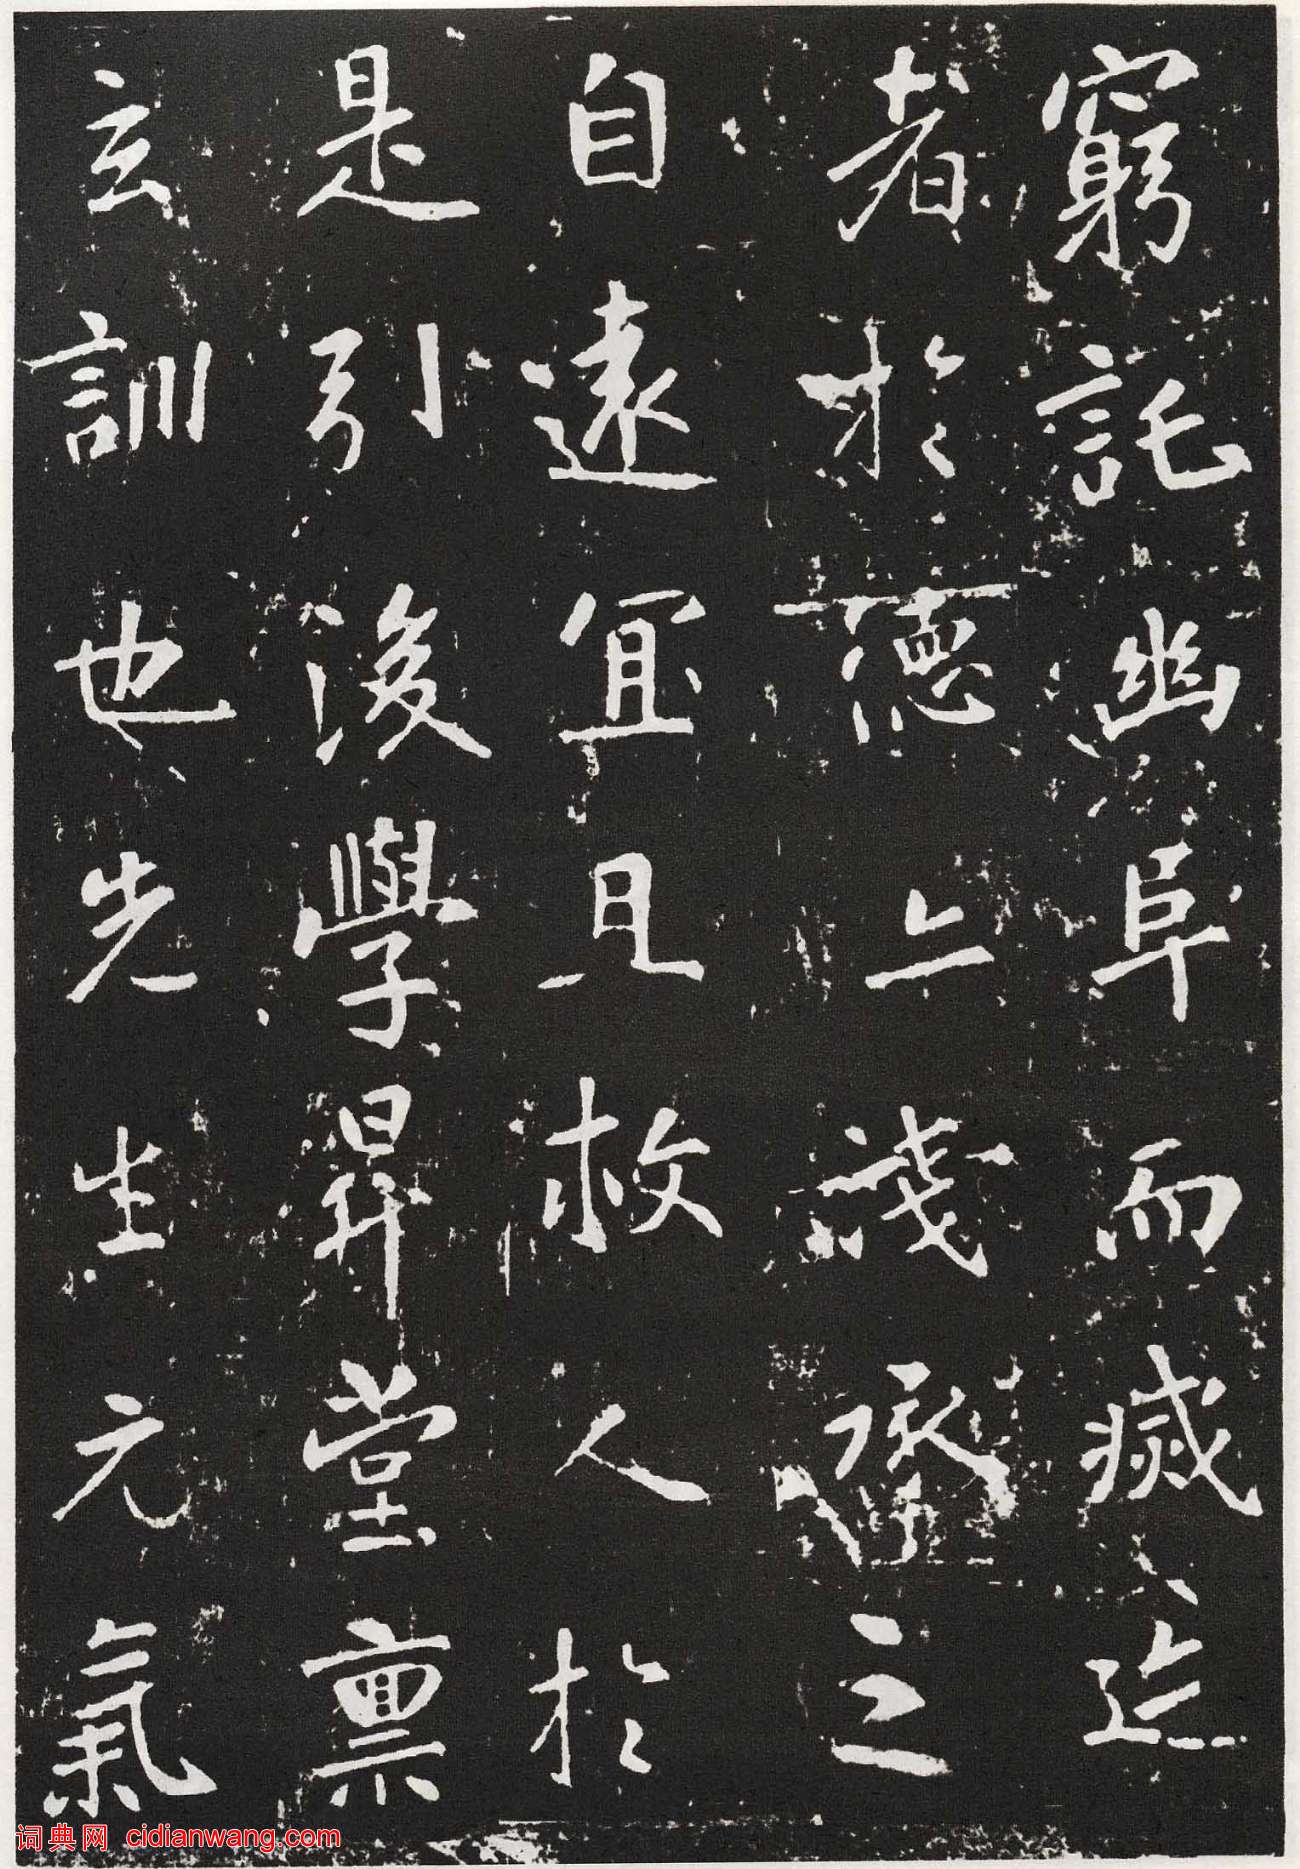 窮託幽阜而滅迹
者於德上淺之
自遠宜且救人於
是引後學昇堂禀
玄訓也先生元氣
词典网 cidianwang.com